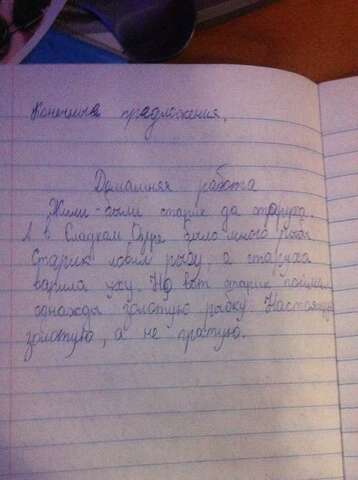 Конечные предложения.
Домашняя работа
Жили-были старик да старуха.
А в Сладком было много рыбы.
Старик ловил рыбу, а старуха
варила уху. Но вот старик поймал
однажды золотую рыбку. Настоящую
золотую, а не простую.